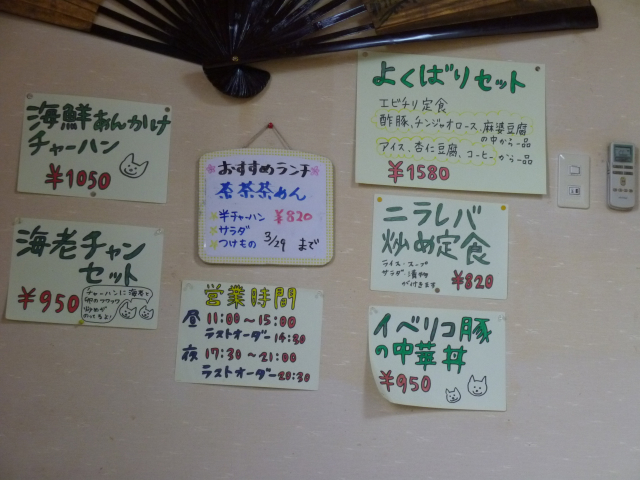 海鮮あんかけ
チャーハン
¥1050
海老チャン
セット
¥950
チャーハンに海老と
卵のフワフワ
炒めが
のってるよ!
おすすめランチ
半チャーハン ¥820
サラダ
つけもの 3/29 まで
営業時間
昼 11:00〜15:00
ラストオーダー 14:30
夜 17:30〜21:00
ラストオーダー 20:30
よくばりセット
エビチリ定食
酢豚、チンジャオロース、麻婆豆腐
の中から一品
アイス、杏仁豆腐、コーヒーから一品
¥1580
ニラレバ
炒め定食
ライス・スープ
サラダ 漬物
が付きます
¥820
イベリコ豚
の中華丼
¥950